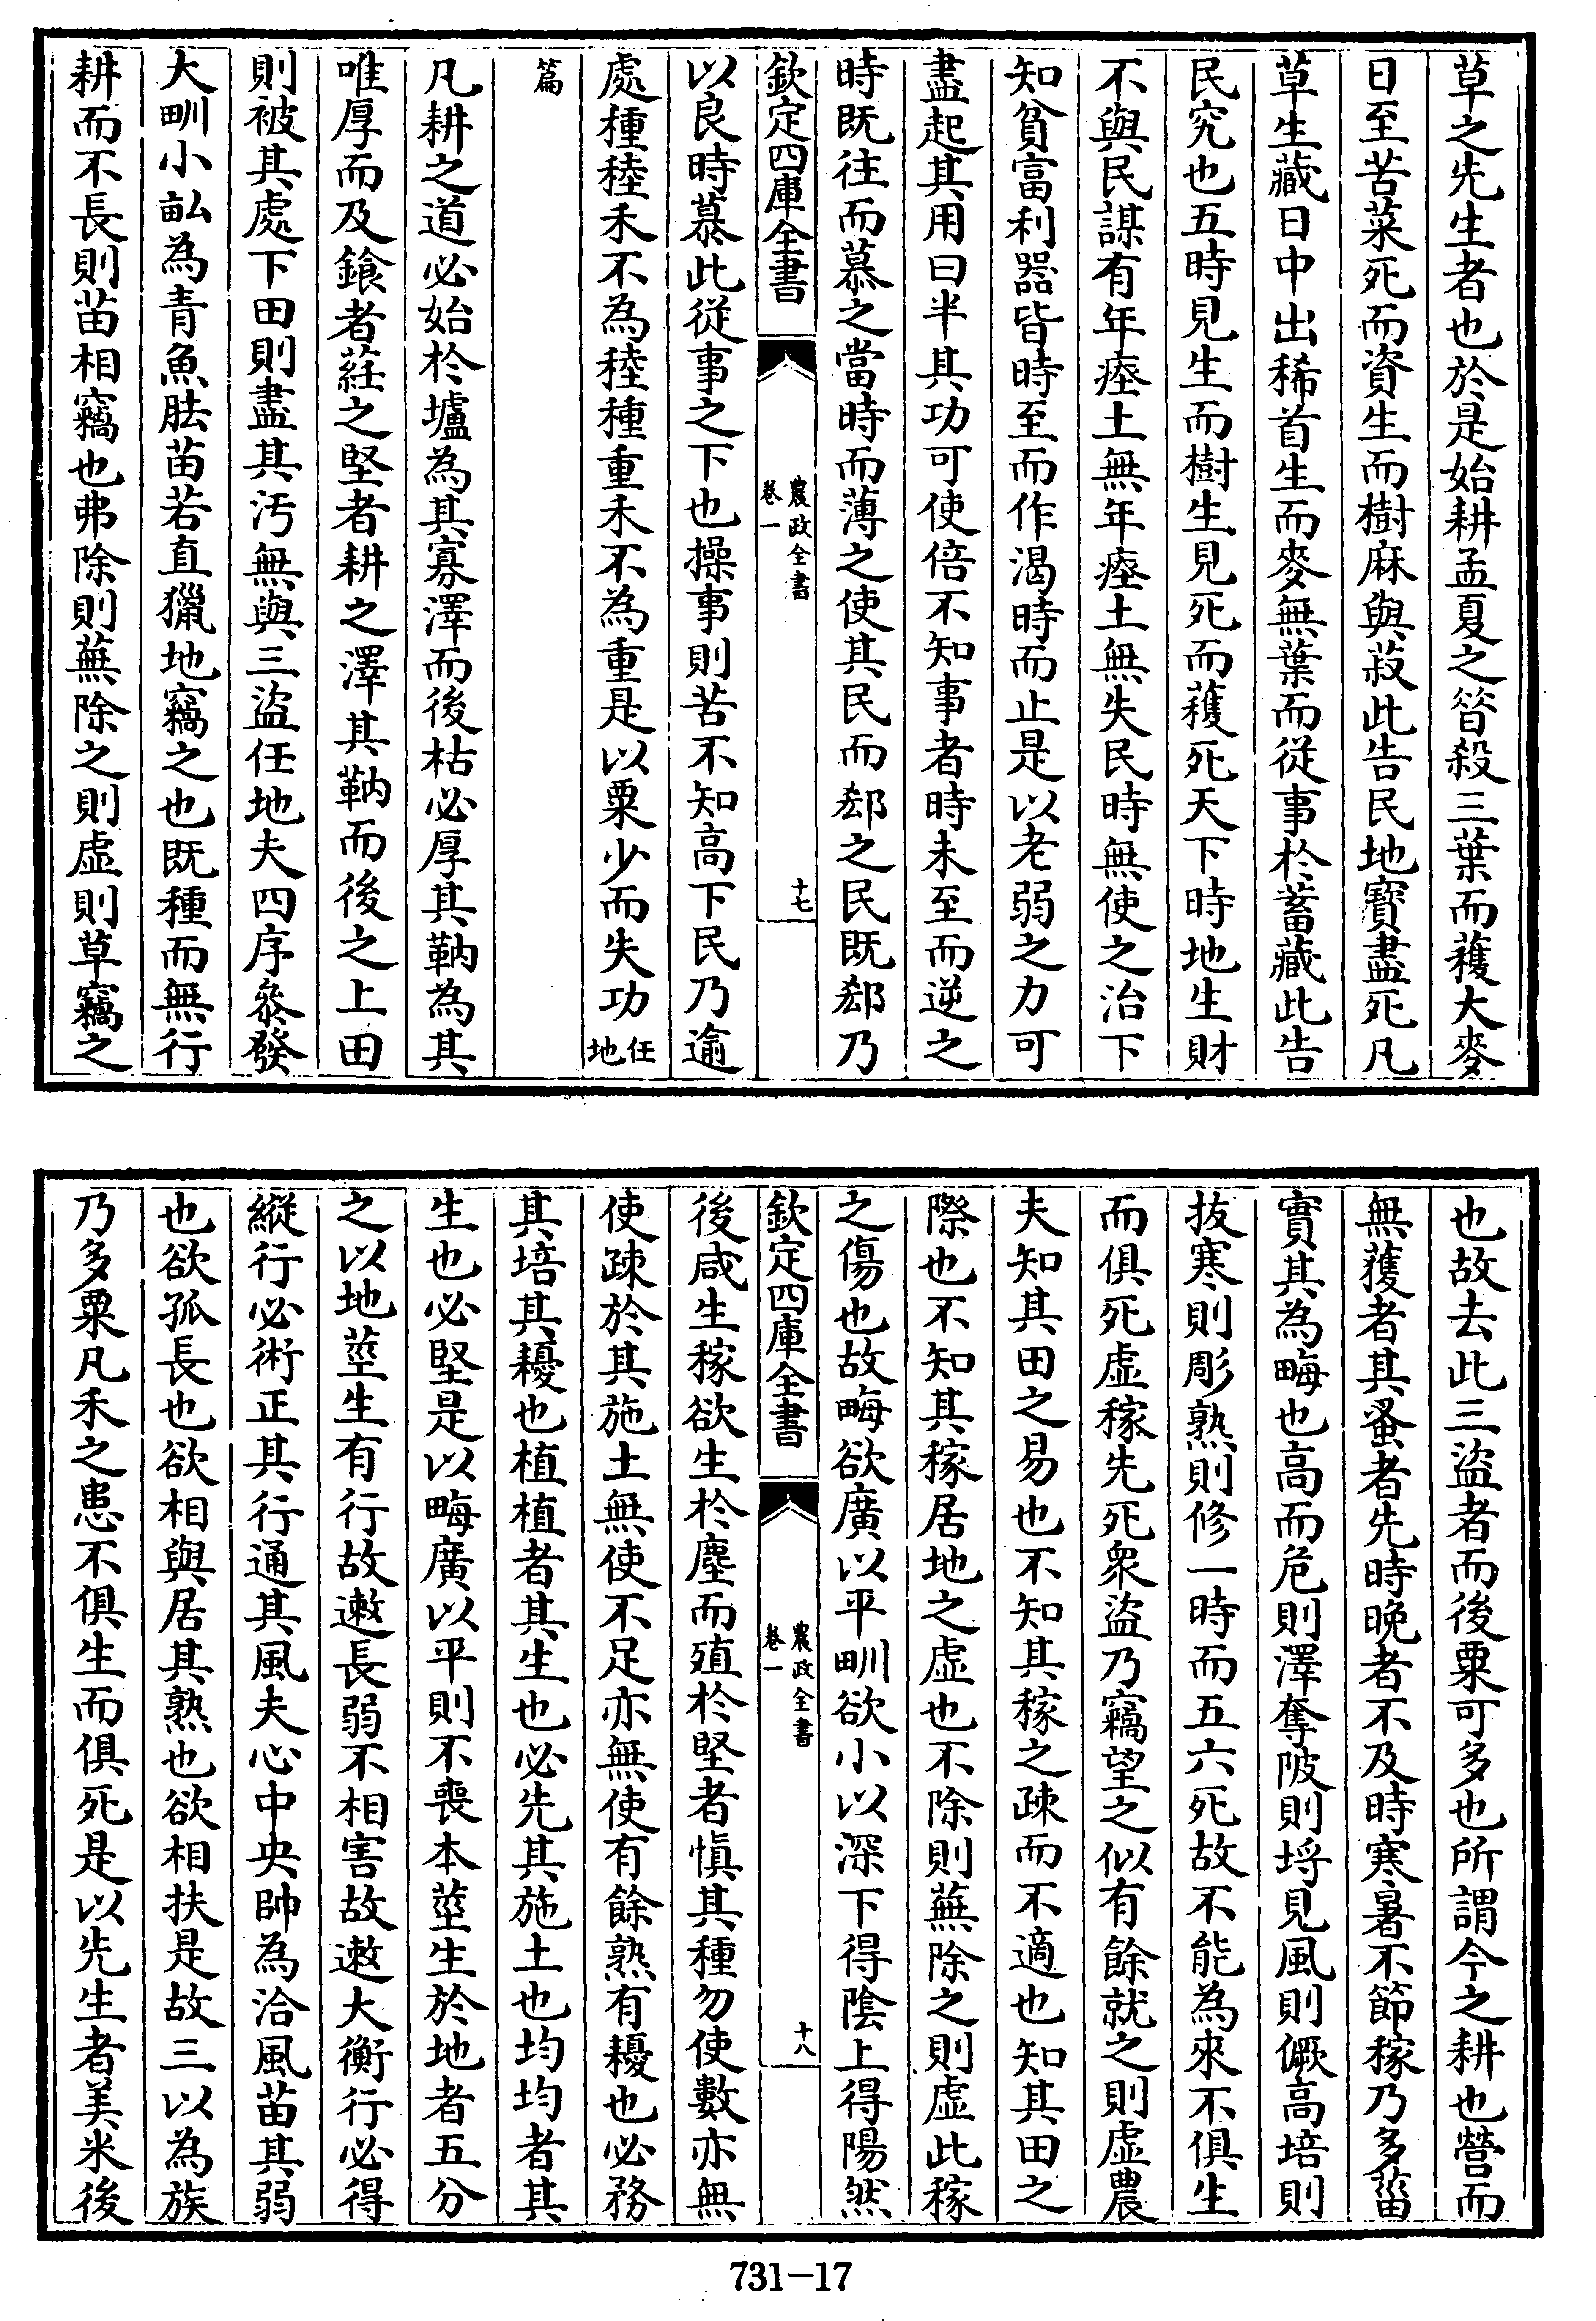 草之先生者也於是始耕孟夏之㫺殺三葉而穫大麥
日至苦菜死而資生而樹麻與菽此告民地寶盡死凡
草生藏日中出狶首生而麥無葉而從事於蓄藏此告
民究也五時見生而樹生見死而穫死天下時地生財
不與民謀有年瘞土無年瘞土無失民時無使之治下
知貧富利器皆時至而作渴時而止是以老弱之力可
盡起其用日半其功可使倍不知事者時未至而逆之
時既往而慕之當時而薄之使其民而郄之民既郄乃
欽定四庫全書
農政全書
卷一
十七
以良時慕此從事之下也操事則苦不知高下民乃逾
處種稑禾不為稑種重禾不為重是以粟少而失功任地
篇
凡耕之道必始於壚為其寡澤而後枯必厚其靹為其
唯厚而及鎗者莊之堅者耕之澤其靹而後之上田
則被其處下田則盡其汚無與三盜任地夫四序叅發
大甽小畝為青魚胠苗若直獵地竊之也既種而無行
耕而不長則苗相竊也弗除則蕪除之則虛則草竊之
也故去此三盜者而後粟可多也所謂今之耕也營而
無獲者其蚤者先時晚者不及時寒暑不節稼乃多菑
實其為畮也高而危則澤奪陂則埒見風則僘高培則
拔寒則彫熟則修一時而五六死故不能為來不俱生
而俱死虛稼先死衆盜乃竊望之似有餘就之則虛農
夫知其田之易也不知其稼之疎而不適也知其田之
際也不知其稼居地之虛也不除則蕪除之則虛此稼
之傷也故畮欲廣以平甽欲小以深下得陰上得陽然
欽定四庫全書
農政全書
卷一
十八
後咸生稼欲生於塵而殖於堅者慎其種勿使數亦無
使疎於其施土無使不足亦無使有餘熟有耰也必務
其培其耰也植植者其生也必先其施土也均均者其
生也必堅是以畮廣以平則不喪本莖生於地者五分
之以地莖生有行故遬長弱不相害故遬大衡行必得
縱行必術正其行通其風夫心中央帥為洽風苗其弱
也欲孤長也欲相與居其熟也欲相扶是故三以為族
乃多粟凡禾之患不俱生而俱死是以先生者美米後
731-17